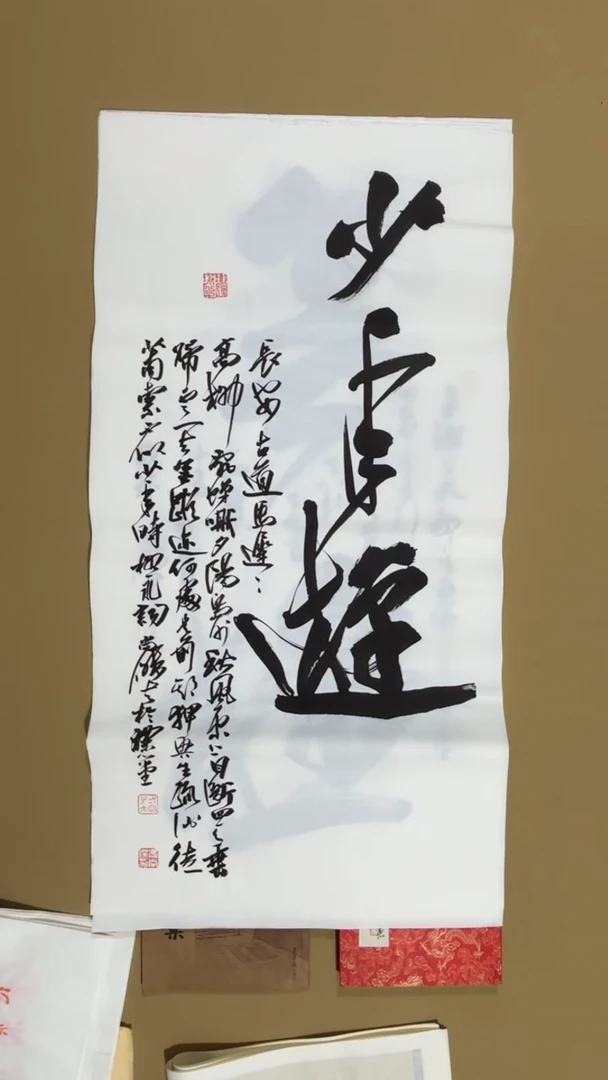 少年遊
長安古道馬遲〻
高柳亂蟬嘶夕陽島外秋風原上目斷四天垂
歸雲一去無蹤迹何處是前期狎興生疏酒徒
蕭索不似少年時柳永詞